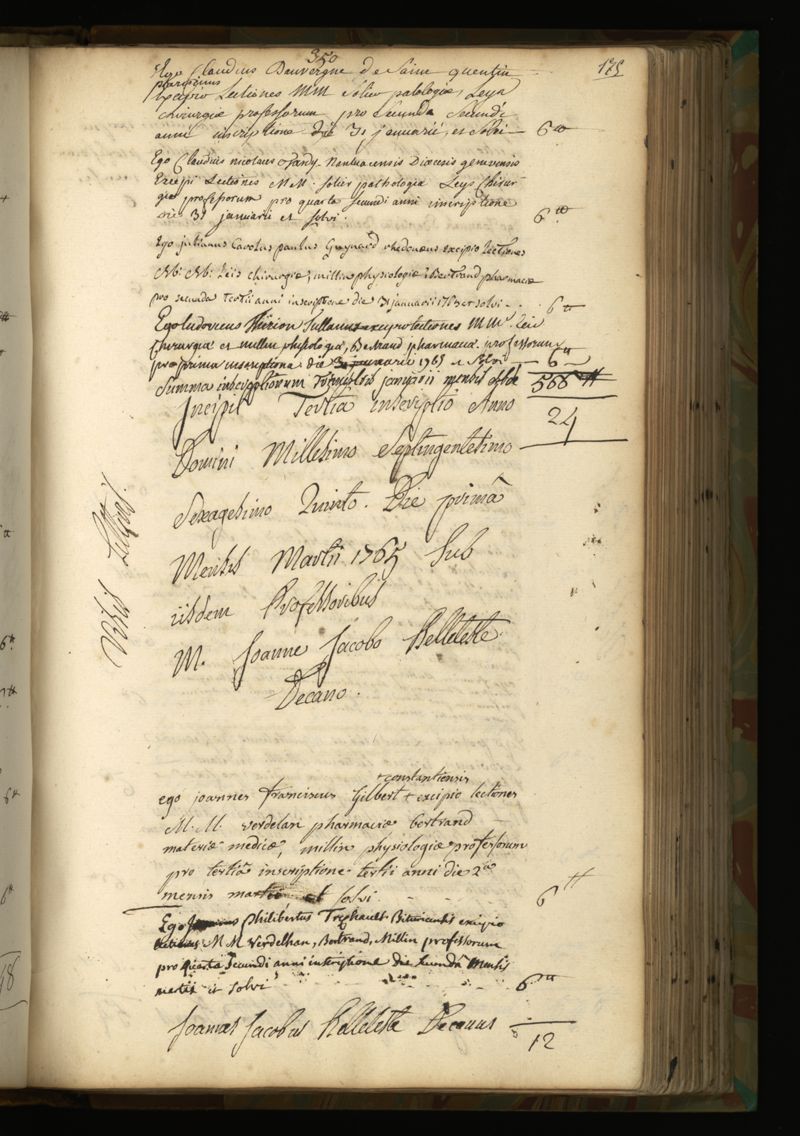 350
175
Ego Claudius Dauvergne de Saint quentin
parisinus
Excipio Lectiones MM Solier patologiæ, Leys
chirurgiæ professorum pro Secunda Secundi
anni inscriptione die 31 januarii, et Solvi — 6 ₶
Ego Claudius nicolaus Nantuacensis Diœcesis genevensis
Excepi Lectiones M M. solier pathologiæ Leys Chirur-
giæ professorum pro quarta secundi anni inscriptione
die 31 januarii et solvi. 6 ₶
Ego julianus Carolus paulus rhedonæus excipio lectiones
chirurgiæ, millin physiologiæ, Bertrand pharmaciæ
pro secunda tertii anni inscriptione die 31 januarii 1765 et solvi - 6 ₶
Ego Ludovicus excipio lectiones MM. Leis
Chirurgiæ et millin phisiologiæ, Bertrand pharmaciæ professorum
pro prima inscriptione die 31 januarii 1765 et Solvi — 6 ₶
Summa inscriptionum mensis 568 ₶
24
Incipit Tertia inscriptio Anno
Domini Millesimo Septingentesimo
Sexagesimo Quinto. Die primâ
Mensis Martii 1765 Sub
iisdem Professoribus
M. Joanne Jacobo Belleteste
Decano.
constantiensis
ego joannes franciscus Gilbert + excipio lectiones
M. M. verdelan pharmaciæ bertrand
materiæ medicæ, millin physiologiæ professorum
pro tertiâ inscriptione tertii anni die 2â
mensis martii et solvi 6 ₶
Ego philibertus Trephault Bituricensis excipio
lectiones M M Verdelhan, Bertrand, Millin professorum
pro quarta Secundi anni inscriptione die secundâ Mensis
martii et solvi 6 ₶
Joannes Jacobus Belleteste Decanus
12